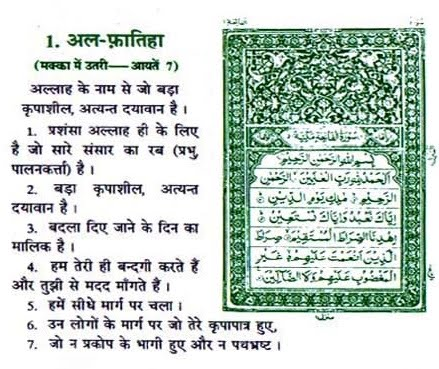 1. अल-फ़ातिहा
(मक्का में उतरी— आयतें 7)
अल्लाह के नाम से जो बड़ा
कृपाशील, अत्यन्त दयावान है ।
1. प्रशंसा अल्लाह ही के लिए
है जो सारे संसार का रब (प्रभु,
पालनकर्त्ता) है ।
2. बड़ा कृपाशील, अत्यन्त
दयावान है ।
3. बदला दिए जाने के दिन का
मालिक है ।
4. हम तेरी ही बन्दगी करते हैं
और तुझी से मदद माँगते हैं ।
5. हमें सीधे मार्ग पर चला ।
6. उन लोगों के मार्ग पर जो तेरे कृपापात्र हुए,
7. जो न प्रकोप के भागी हुए और न पथभ्रष्ट ।
سُورَةُ الْفَاتِحَةِ مَكِّيَّةٌ
بِسْمِ اللهِ الرَّحْمٰنِ الرَّحِيْمِ
اَلْحَمْدُ لِلّٰهِ رَبِّ الْعٰلَمِيْنَ الرَّحْمٰنِ
الرَّحِيْمِ مٰلِكِ يَوْمِ الدِّيْنِ
اِيَّاكَ نَعْبُدُ وَاِيَّاكَ نَسْتَعِيْنُ
اِهْدِنَا الصِّرَاطَ الْمُسْتَقِيْمَ صِرَاطَ
الَّذِيْنَ اَنْعَمْتَ عَلَيْهِمْ غَيْرِ
الْمَغْضُوْبِ عَلَيْهِمْ وَلَا الضَّآلِّيْنَ